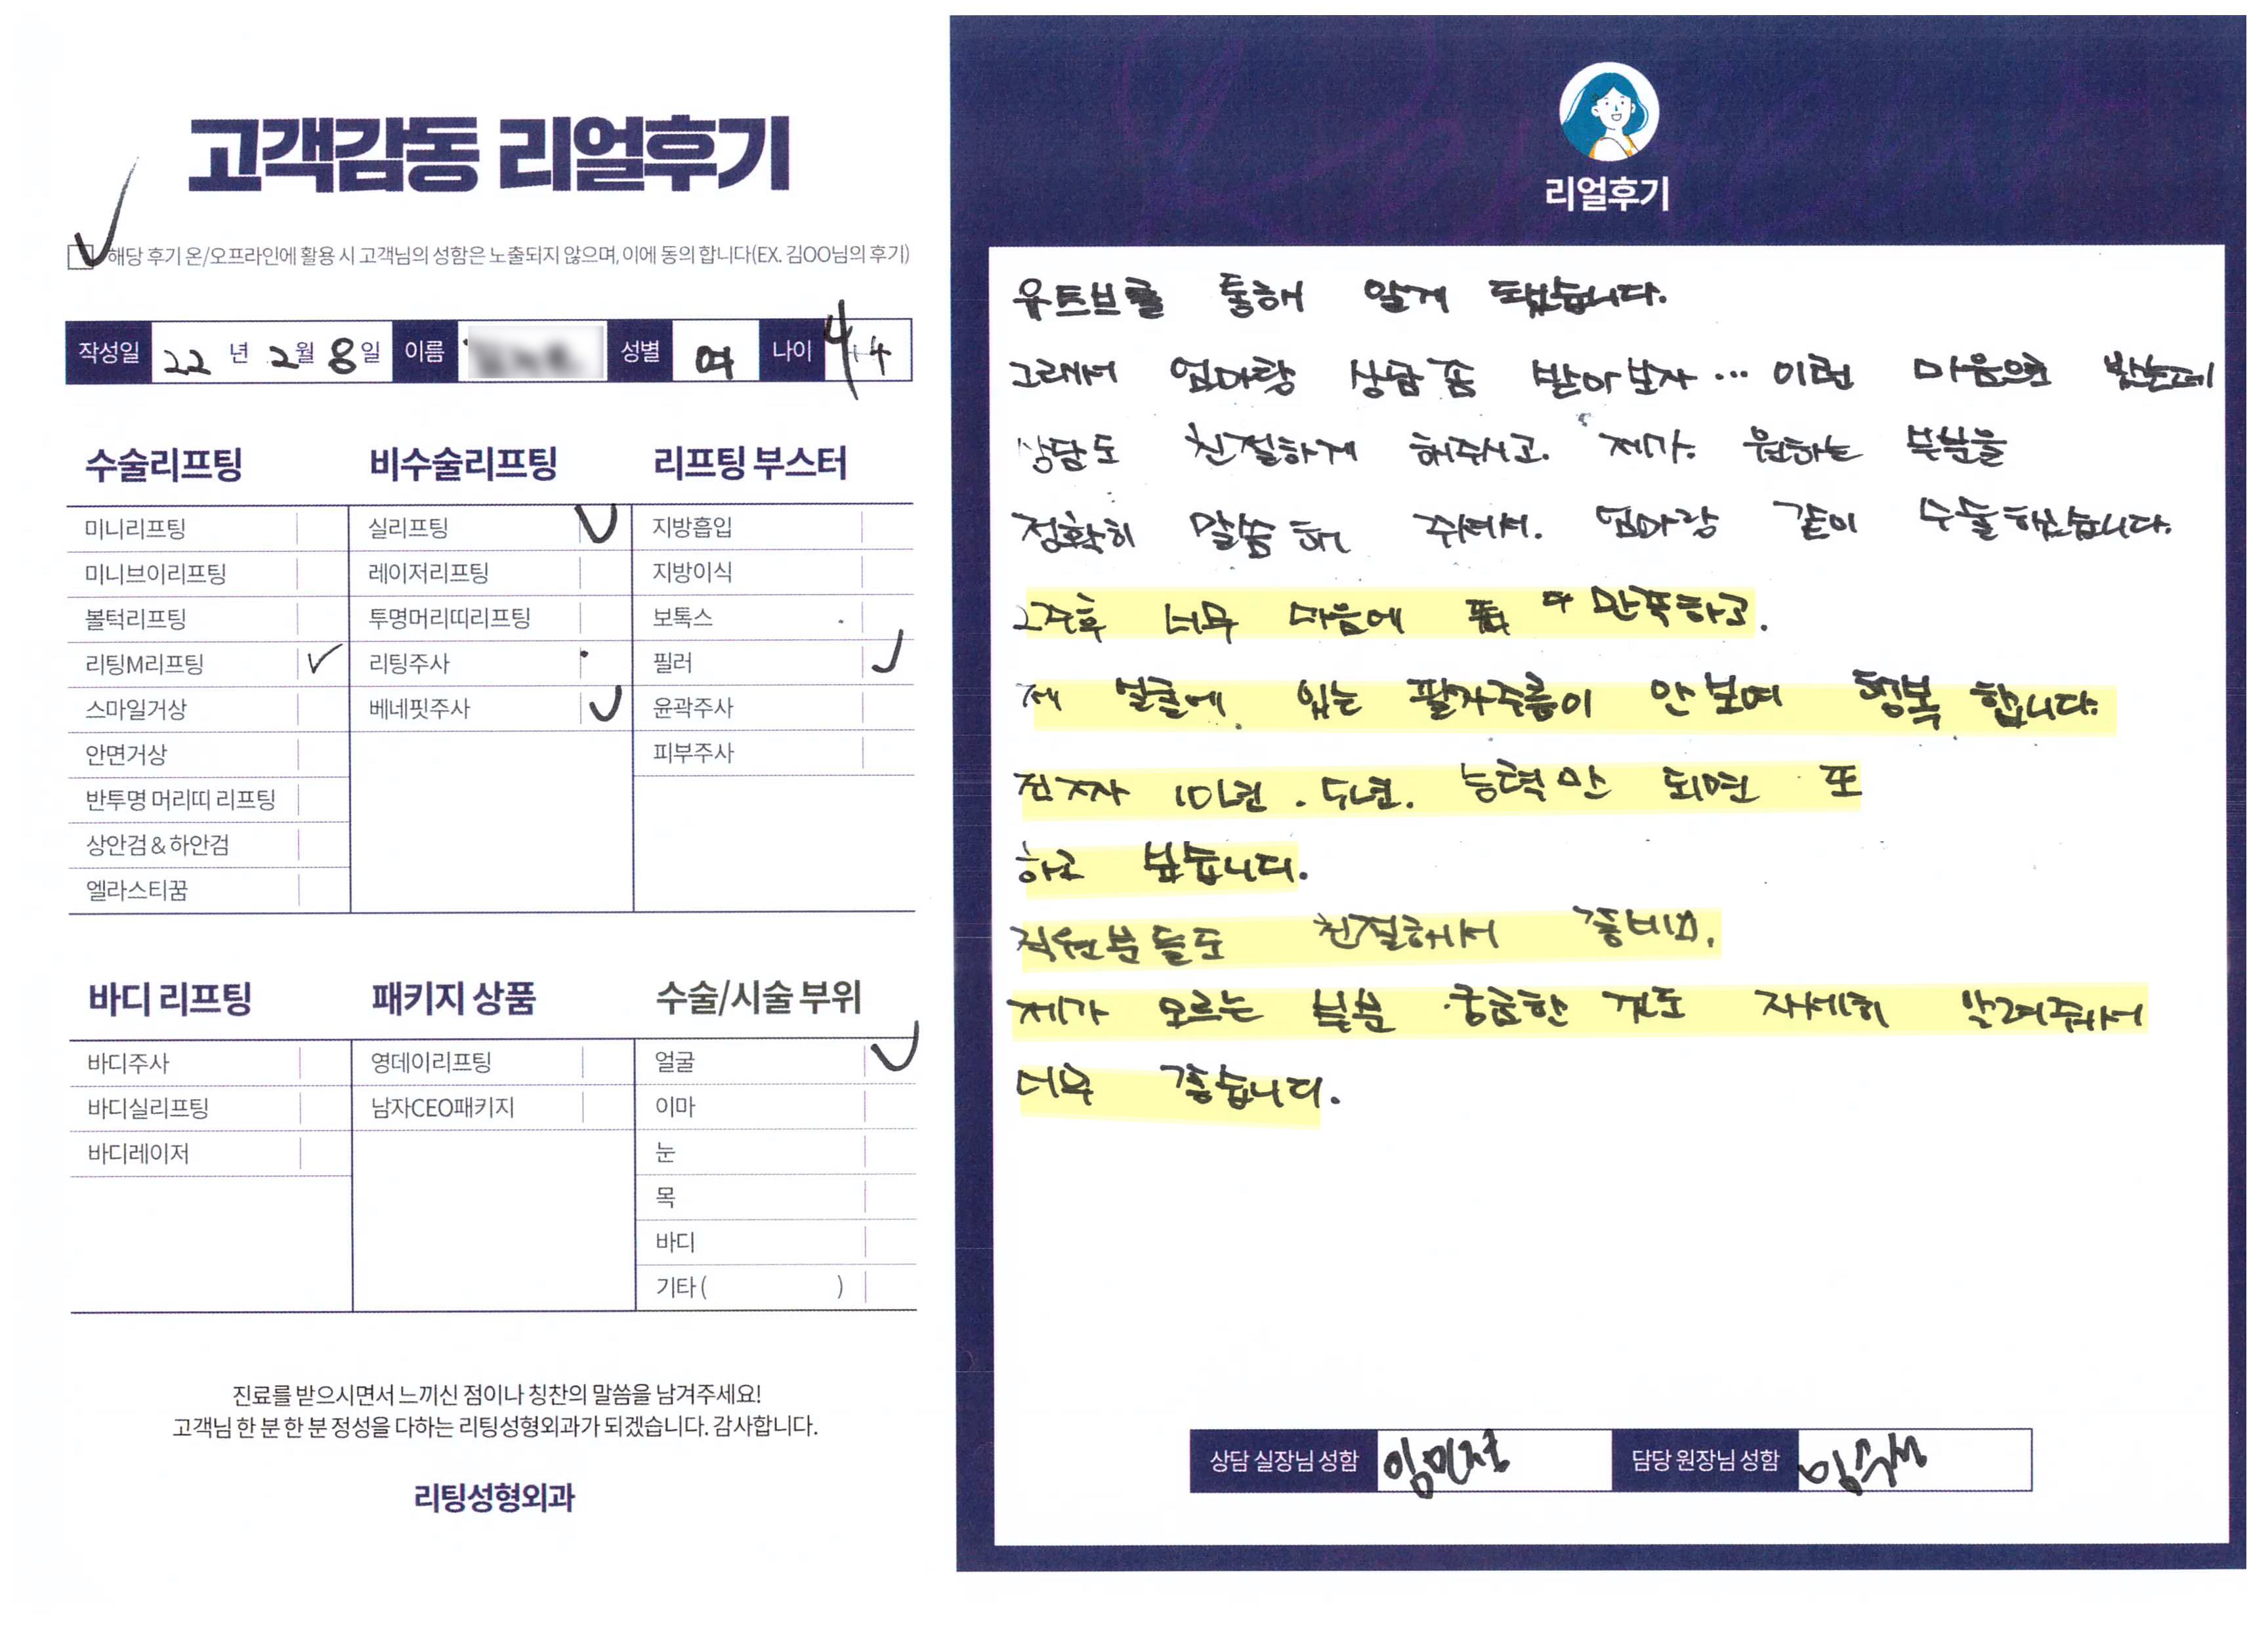 고객감동 리얼후기
해당 후기 온/오프라인에 활용 시 고객님의 성함은 노출되지 않으며, 이에 동의 합니다(EX. 김OO님의 후기)
작성일 22 년 2월 8일 이름 성별 여 나이 44
수술리프팅
미니리프팅
미니브이리프팅
볼턱리프팅
리팅M리프팅
스마일거상
안면거상
반투명 머리띠 리프팅
상안검 & 하안검
엘라스티꿈
비수술리프팅
실리프팅
레이저리프팅
투명머리띠리프팅
리팅주사
베네핏주사
리프팅 부스터
지방흡입
지방이식
보톡스
필러
윤곽주사
피부주사
바디 리프팅
바디주사
바디실리프팅
바디레이저
패키지 상품
영데이리프팅
남자CEO패키지
수술/시술 부위
얼굴
이마
눈
목
바디
기타 ( )
진료를 받으시면서 느끼신 점이나 칭찬의 말씀을 남겨주세요!
고객님 한 분 한 분 정성을 다하는 리팅성형외과가 되겠습니다. 감사합니다.
리팅성형외과
리얼후기
유트브를 통해 알게 됐습니다.
그래서 엄마랑 상담 좀 받아보자... 이런 마음으로 봤는데
상담도 친절하게 해주시고. 제가. 원하는 부분을
정확히 말씀 해 주셔서. 엄마랑 같이 수술했습니다.
2주후 너무 마음에 만족하고.
제 얼굴에 있는 팔자주름이 안보여 행복 합니다.
진짜 10년. 능력만 되면 또
하고 싶습니다.
직원분들도 친절해서 좋네요.
제가 모르는 부분 궁금한 거도 자세히 알려주셔서
너무 좋습니다.
상담 실장님 성함 임민정 담당 원장님 성함